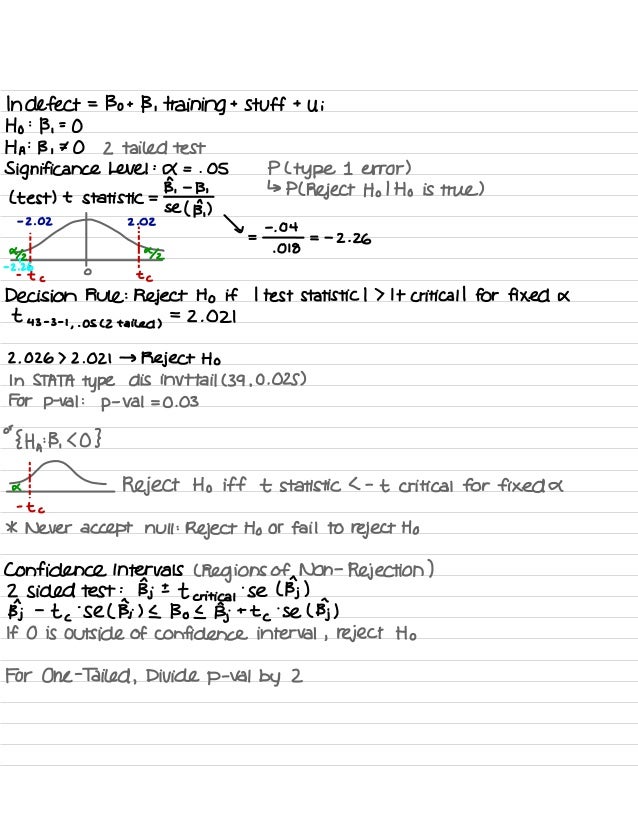 ln defect = B₀ + B₁ training + stuff + uᵢ
H₀: B₁ = 0
Hᴀ: B₁ ≠ 0 2 tailed test
Significance Level: α = .05 P(type 1 error)
↳ P(Reject H₀ | H₀ is true)
(test) t statistic = (B̂₁ - B₁) / se(B̂₁)
= -.04 / .018 = -2.26
-2.02 2.02
α/2 α/2
-2.26 0
-tc tc
Decision Rule: Reject H₀ if |test statistic| > |t critical| for fixed α
t 43-3-1, .05 (2 tailed) = 2.021
2.026 > 2.021 → Reject H₀
In STATA type dis invttail(39, 0.025)
For p-val: p-val = 0.03
or {Hᴀ: B₁ < 0}
α Reject H₀ iff t statistic < -t critical for fixed α
-tc
* Never accept null: Reject H₀ or fail to reject H₀
Confidence Intervals (Regions of Non-Rejection)
2 sided test: B̂ⱼ ± t critical · se (B̂ⱼ)
B̂ⱼ - tc · se(B̂ⱼ) ≤ B₀ ≤ B̂ⱼ + tc · se(B̂ⱼ)
If 0 is outside of confidence interval, reject H₀
For One-Tailed, Divide p-val by 2